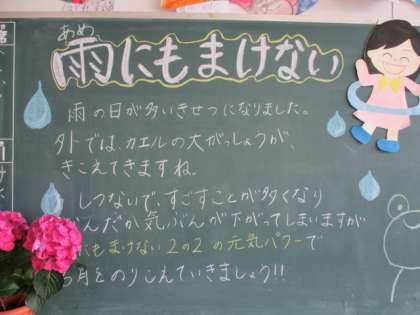 あめ
雨にもまけない
雨の日が多いきせつになりました。
外では、カエルの大がっしょうが、
きこえてきますね。
しつないで、すごすことが多くなり
なんだか気ぶんが下がってしまいますが
にもまけない2の2の元気パワーで
月をのりこえていきましょう!!